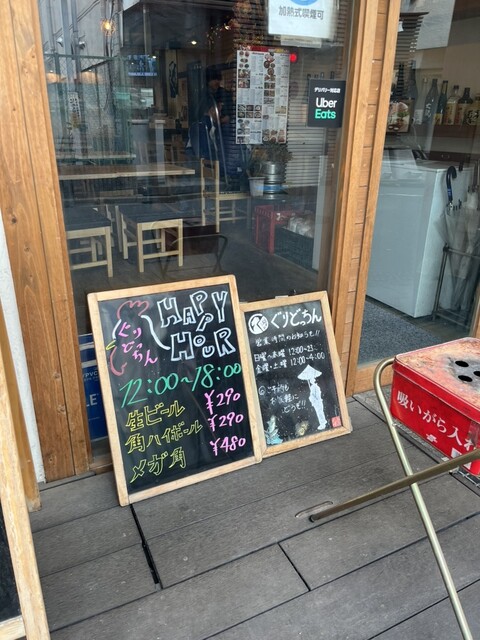 加熱式喫煙可
デリバリー対応店
Uber
Eats
とりどっちん
HAPPY
HOUR
12:00~18:00
生ビール ¥290
角ハイボール ¥290
メガ角 ¥480
ぐりどっちん
営業時間のお知らせ!!
日曜~木曜 12:00~23:
金曜・土曜 12:00~4:00
お気軽に
どうぞ!!
吸いがら入れ